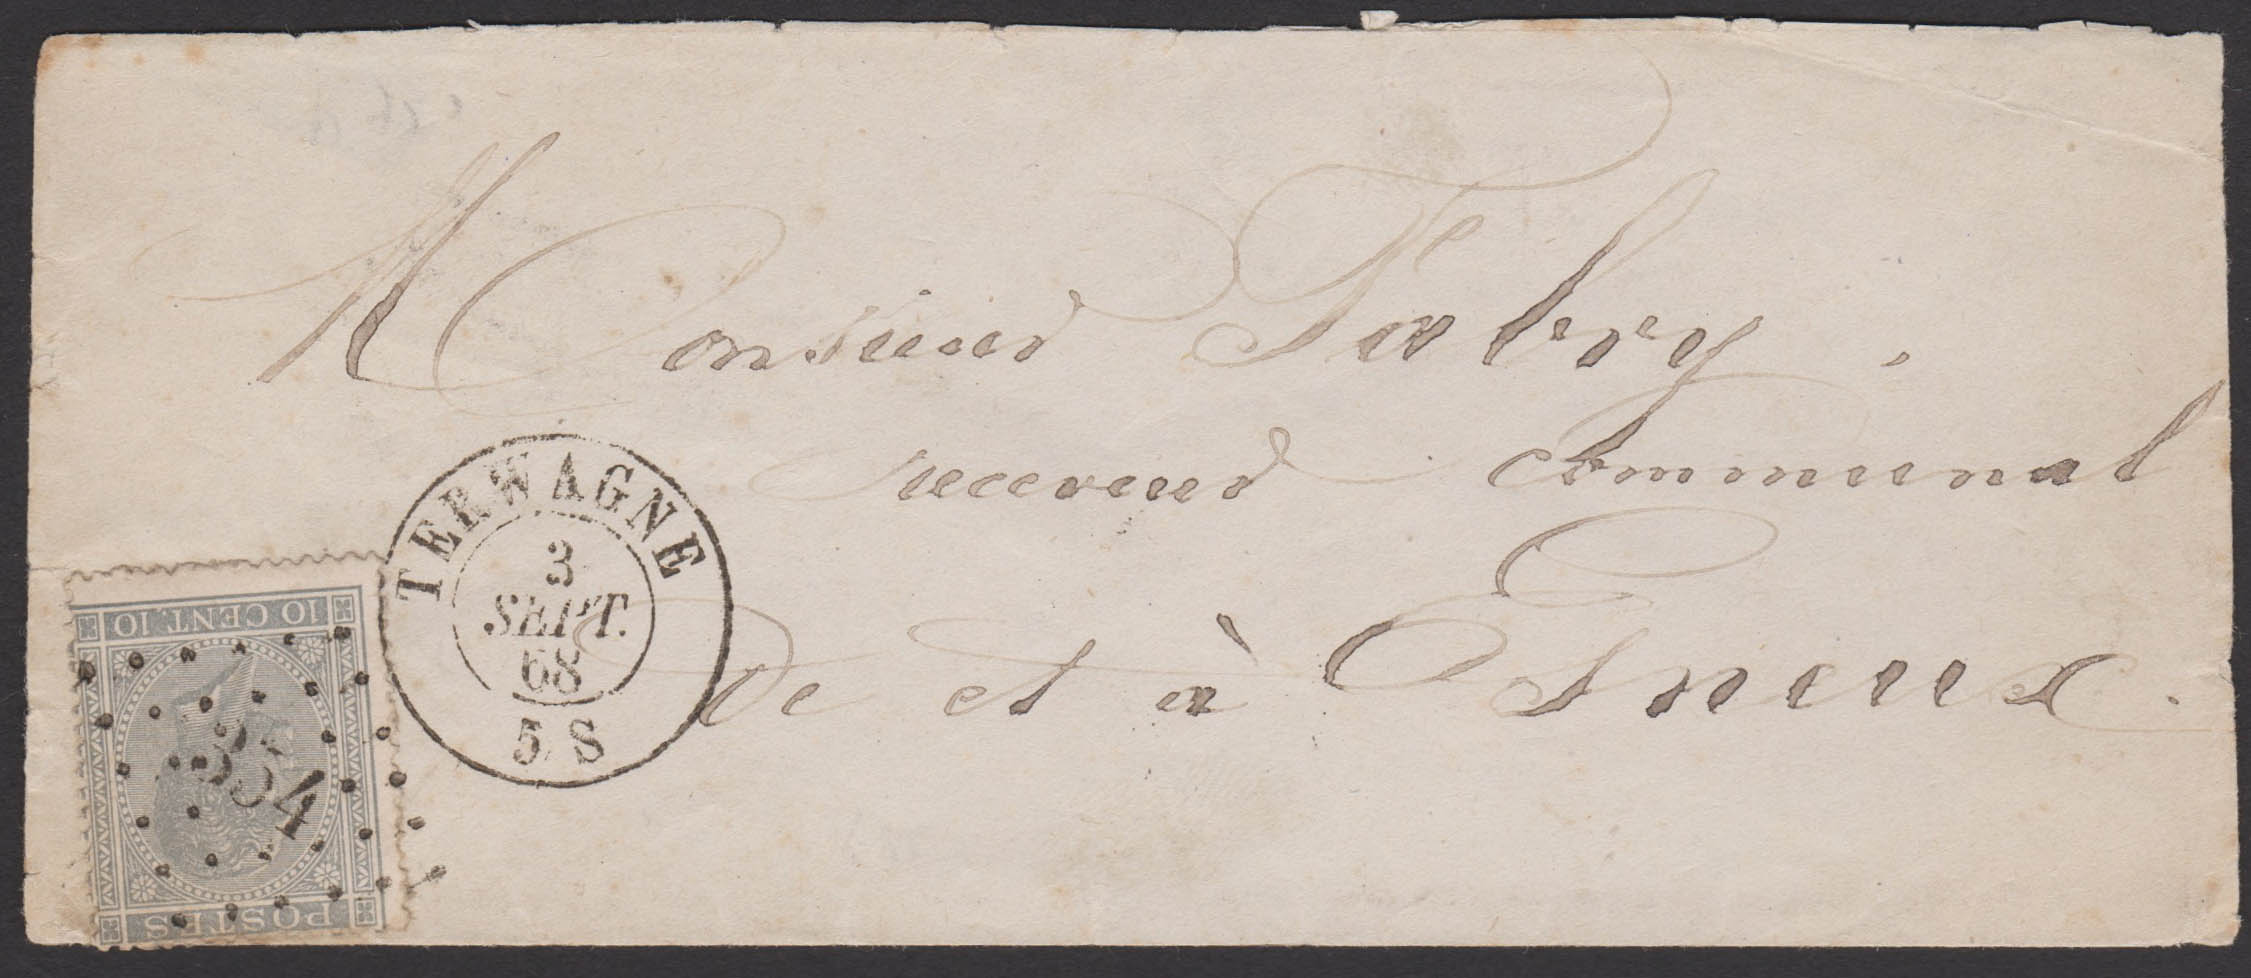 Monsieur Fabry.
receveur communal
de et à Esneux.
TERWAGNE
3
SEPT.
68
5/S
10 CENT. 10
354
POSTES